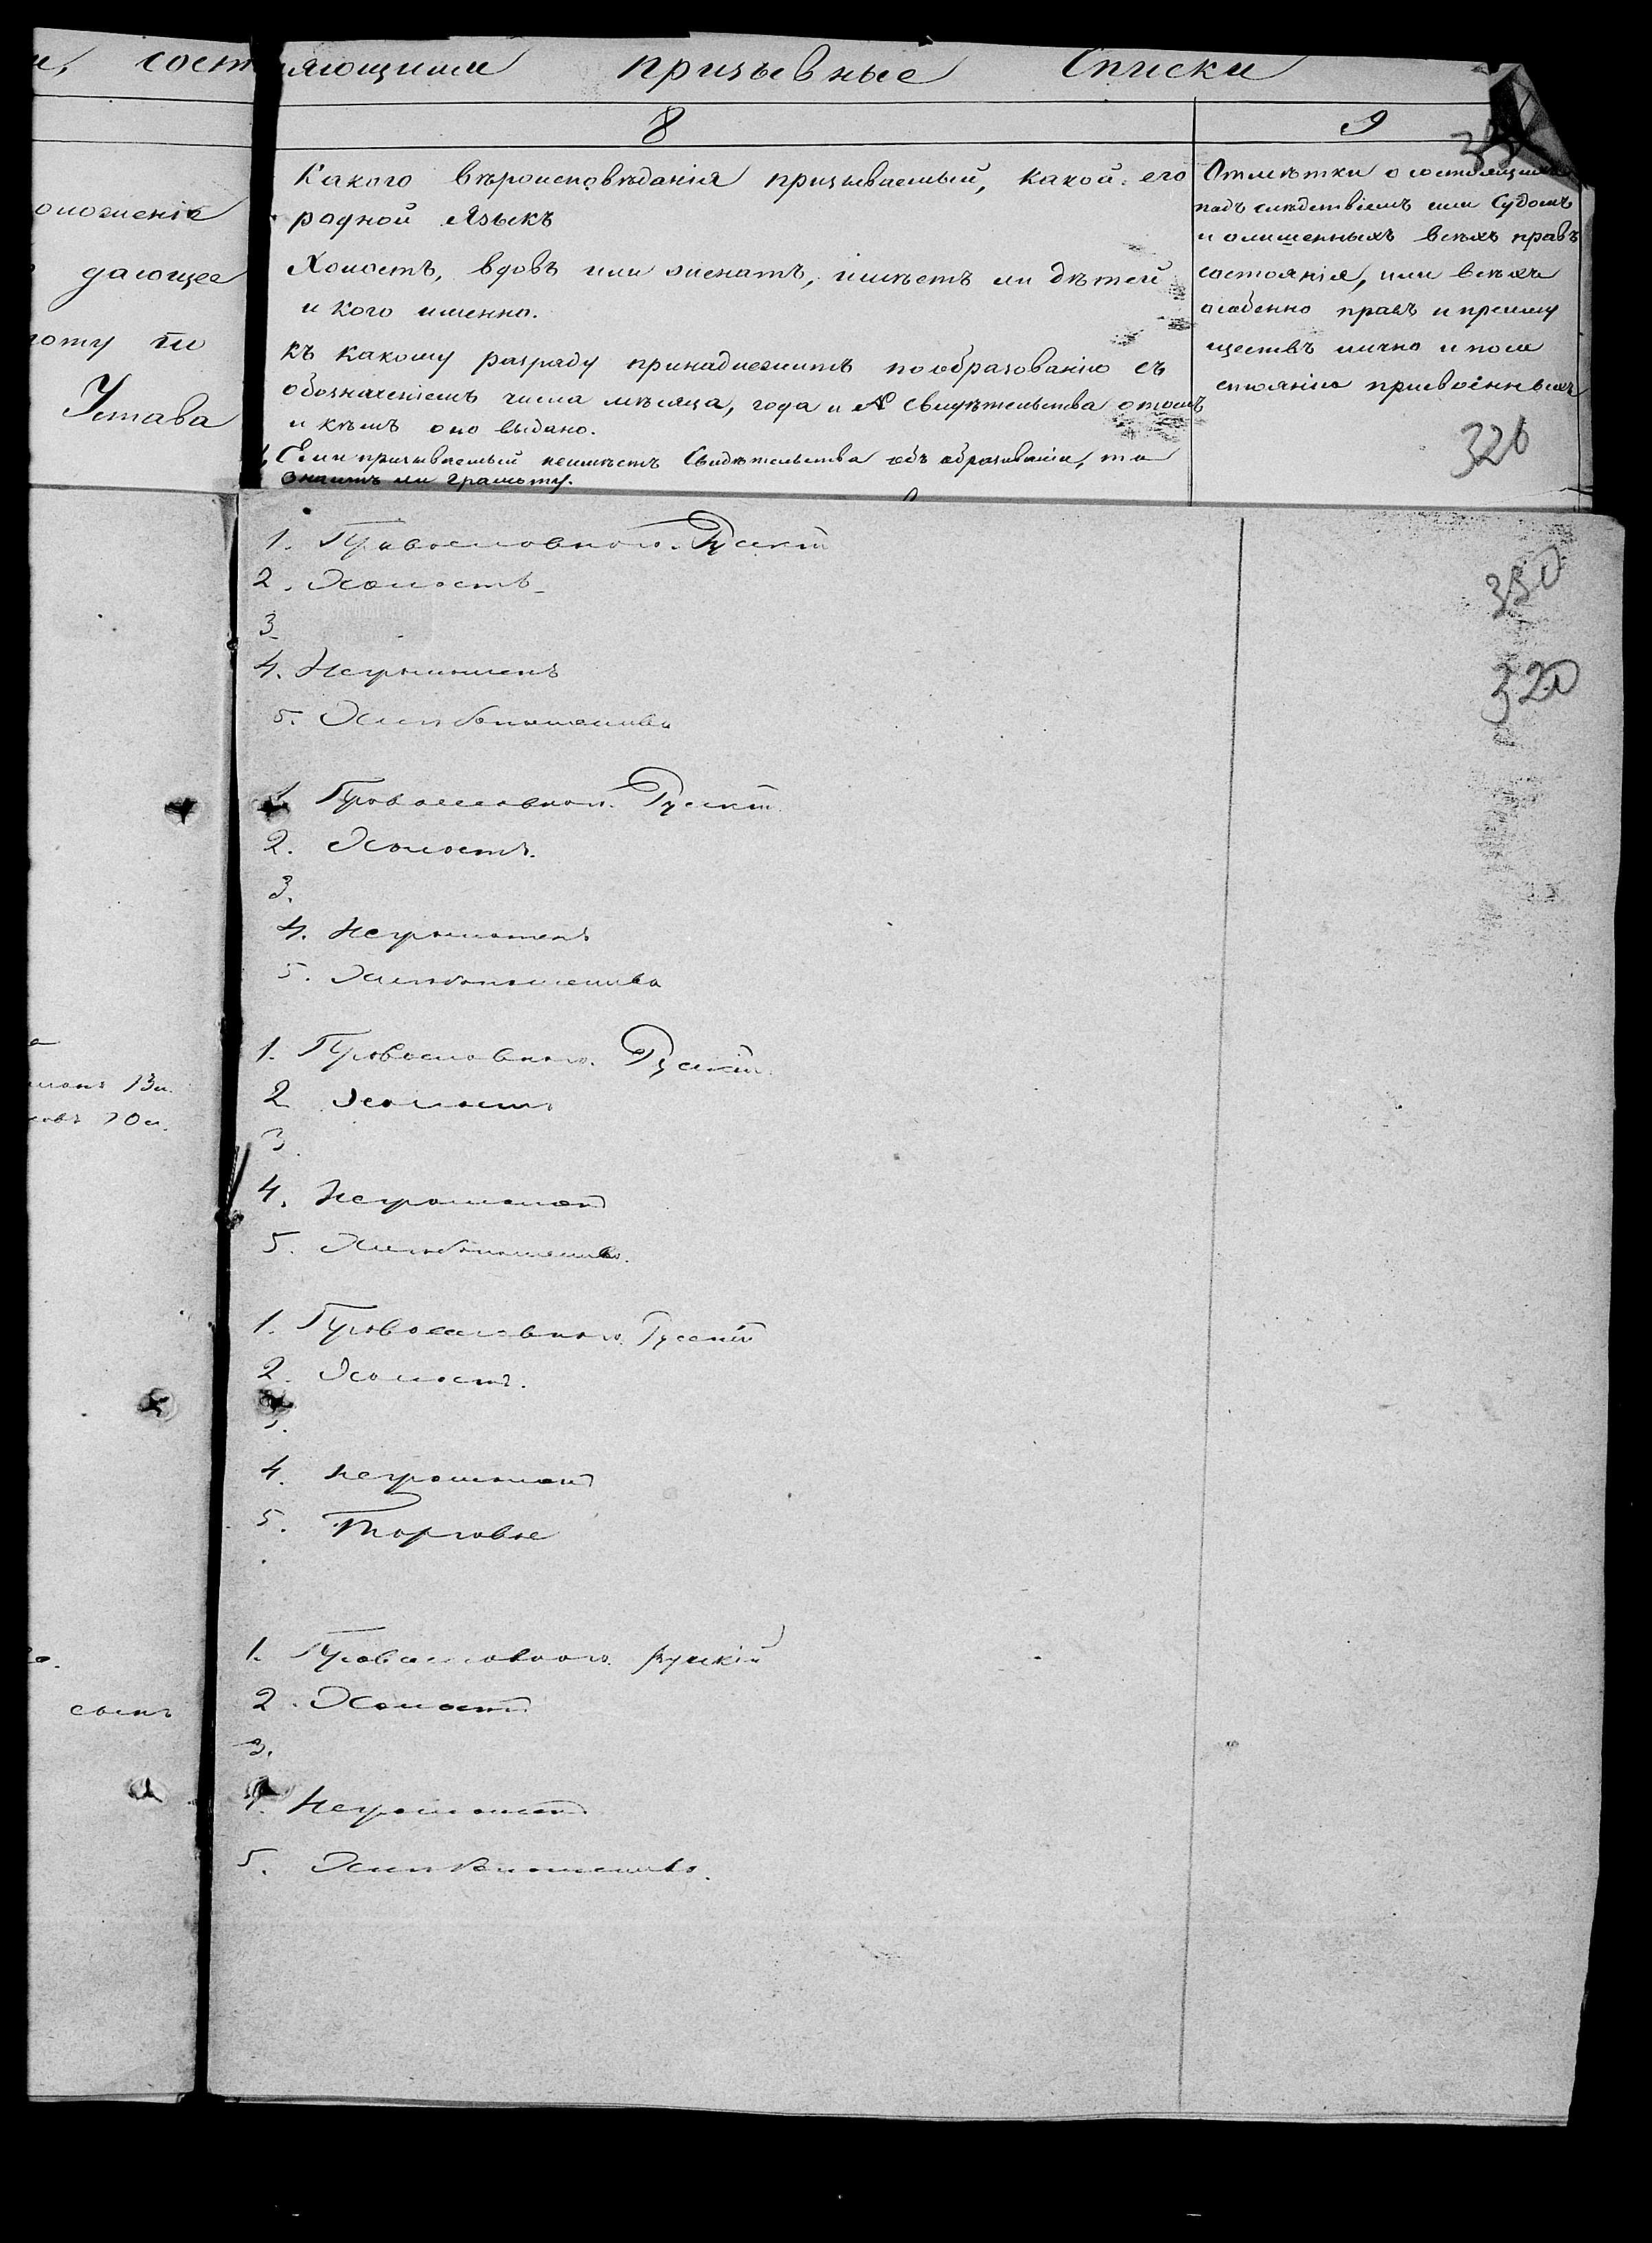 сост ляющими призывные Списки
8
9
Какого вѣроисповѣданія призываемый, какой его
родной Языкъ
Холостъ, вдовъ или женатъ, имѣетъ ли дѣтей
и кого именно.
Къ какому разряду принадлежитъ по образованію съ
обозначеніемъ числа мѣсяца, года и № Свидѣтельства о томъ
и кѣмъ оно выдано.
Если призываемый неимѣетъ Свидѣтельства объ образованіи, то
знаитъ ли грамоту.
Отмѣтки о состоящихъ
подъ слѣдствіемъ или Судомъ
и о лишенныхъ всѣхъ правъ
состоянія, или всѣхъ
особенно правъ и преиму
ществъ лично и по со
стоянію присвоенныхъ
326
оложеніе
дающее
по
Устава
1. Православного. Рускій
2. Холостъ
3
4. Неграмотенъ
5. Хлебопашество
350
320
1 Православного. Рускій
2. Холостъ.
3.
4. Неграмотенъ
5. Хлебопашество
1. Православного. Рускій
2 Холостъ
3.
4. Неграмотенъ
5. Хлебопашество.
13 л.
10 л.
1. Православного. Рускій
2. Холостъ.
3.
4. Неграмотенъ
5. Торговле
1. Православного. Рускій
2. Холостъ
3.
4. Неграмотенъ
5. Хлебопашество.
сынъ